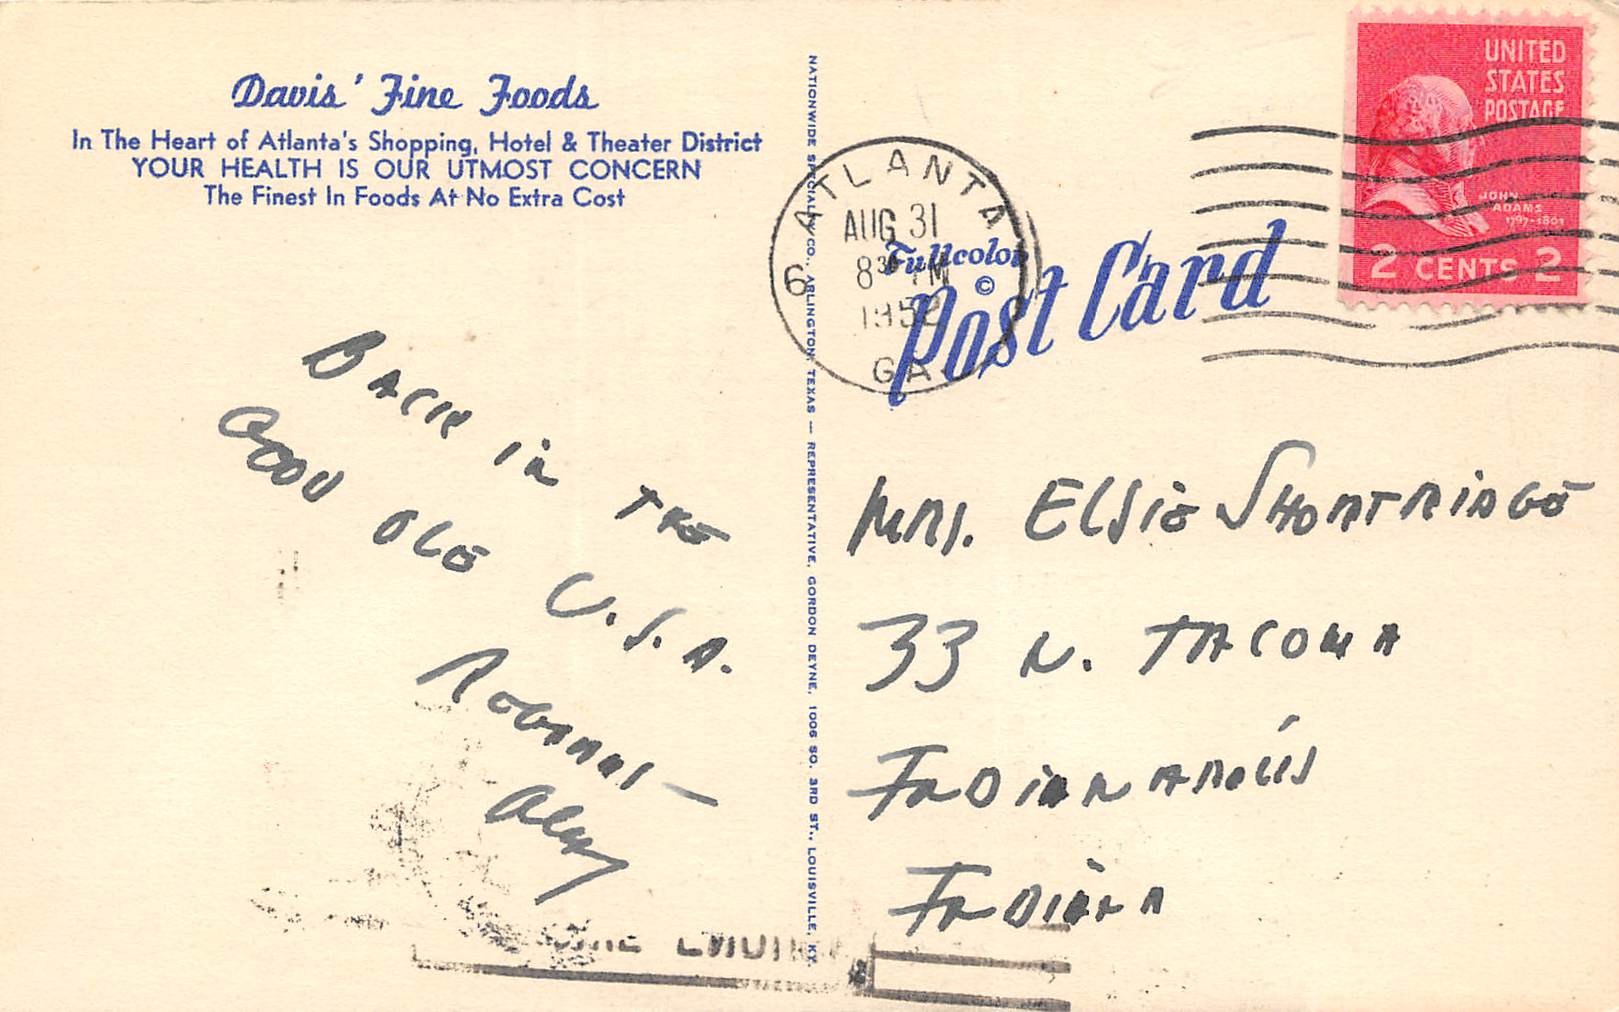 Davis' Fine Foods
In The Heart of Atlanta's Shopping, Hotel & Theater District
YOUR HEALTH IS OUR UTMOST CONCERN
The Finest In Foods At No Extra Cost
BACK in THE
GOOD OLE U.S.A.
REGARDS —
NATIONWIDE SPECIALTY CO., ARLINGTON, TEXAS — REPRESENTATIVE, GORDON DEYNE, 1006 SO. 3RD ST., LOUISVILLE, KY.
ATLANTA
6
AUG 31
8 30 PM
1952
GA.
Fullcolor
©
Post Card
UNITED
STATES
POSTAGE
JOHN
ADAMS
1797-1801
2 CENTS 2
MRS. ELSiE SHORTRIDGE
33 N. TACOMA
INDiANAPOLiS
INDiANA